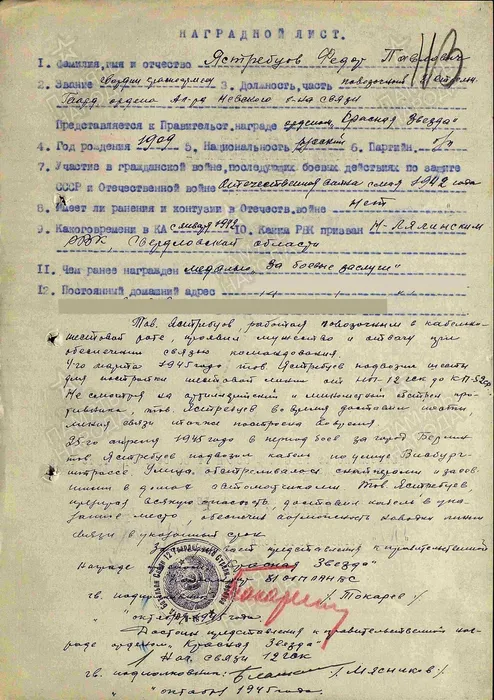 НАГРАДНОЙ ЛИСТ.
1. Фамилия, имя и отчество Ястребцов Федот Павлович
2. Звание гвардии красноармеец 3. Должность, часть повозочный 81 отдельн.
Гвард. ордена Ал-ра Невского п-на связи
Представляется к Правительст. награде орденом "Красная Звезда"
4. Год рождения 1909 5. Национальность русский 6. Партийн. б/п
7. Участие в гражданской войне, последующих боевых действиях по защите
СССР и Отечественной войне Отечественная война с мая 1942 года
8. Имеет ли ранения и контузии в Отечеств. войне нет
9. Какоговремени в КА с января 1942 10. Каким РВК призван Н-Лялинским
РВК, Свердловской области
11. Чем ранее награжден медалью "За боевые заслуги"
12. Постоянный домашний адрес
Тов. Ястребцов, работая повозочным в кабельно-
шестовой роте, проявил мужество и отвагу при
обеспечении связью командования.
4го марта 1945 года, тов. Ястребцов подвозил шесты
для постройки шестовой линии от НП-12 гск до КП-52
Не смотря на артиллерийский и минометный обстрел про-
тивника, тов. Ястребцов во время доставил шесты,
линия связи была построена вовремя.
25го апреля 1945 года в период боев за город Берлин
тов. Ястребцов подвозил кабель по улице
штрассе. Улица обстреливалась снайперами и засев-
шими в домах автоматчиками. Тов. Ястребцов,
презирая всякую опасность, доставил кабель в ука-
занное место, обеспечив возможность наводки линии
связи в указанный срок.
представления к правительственной
награде "Красная Звезда"
гв. подполковник /Токарев/
октября 1945 года.
Достоин представления к правительственной наг-
раде орденом "Красная Звезда"
Нач. связи 12 гск
гв. подполковник /Мясников/
" " октября 1945 года.